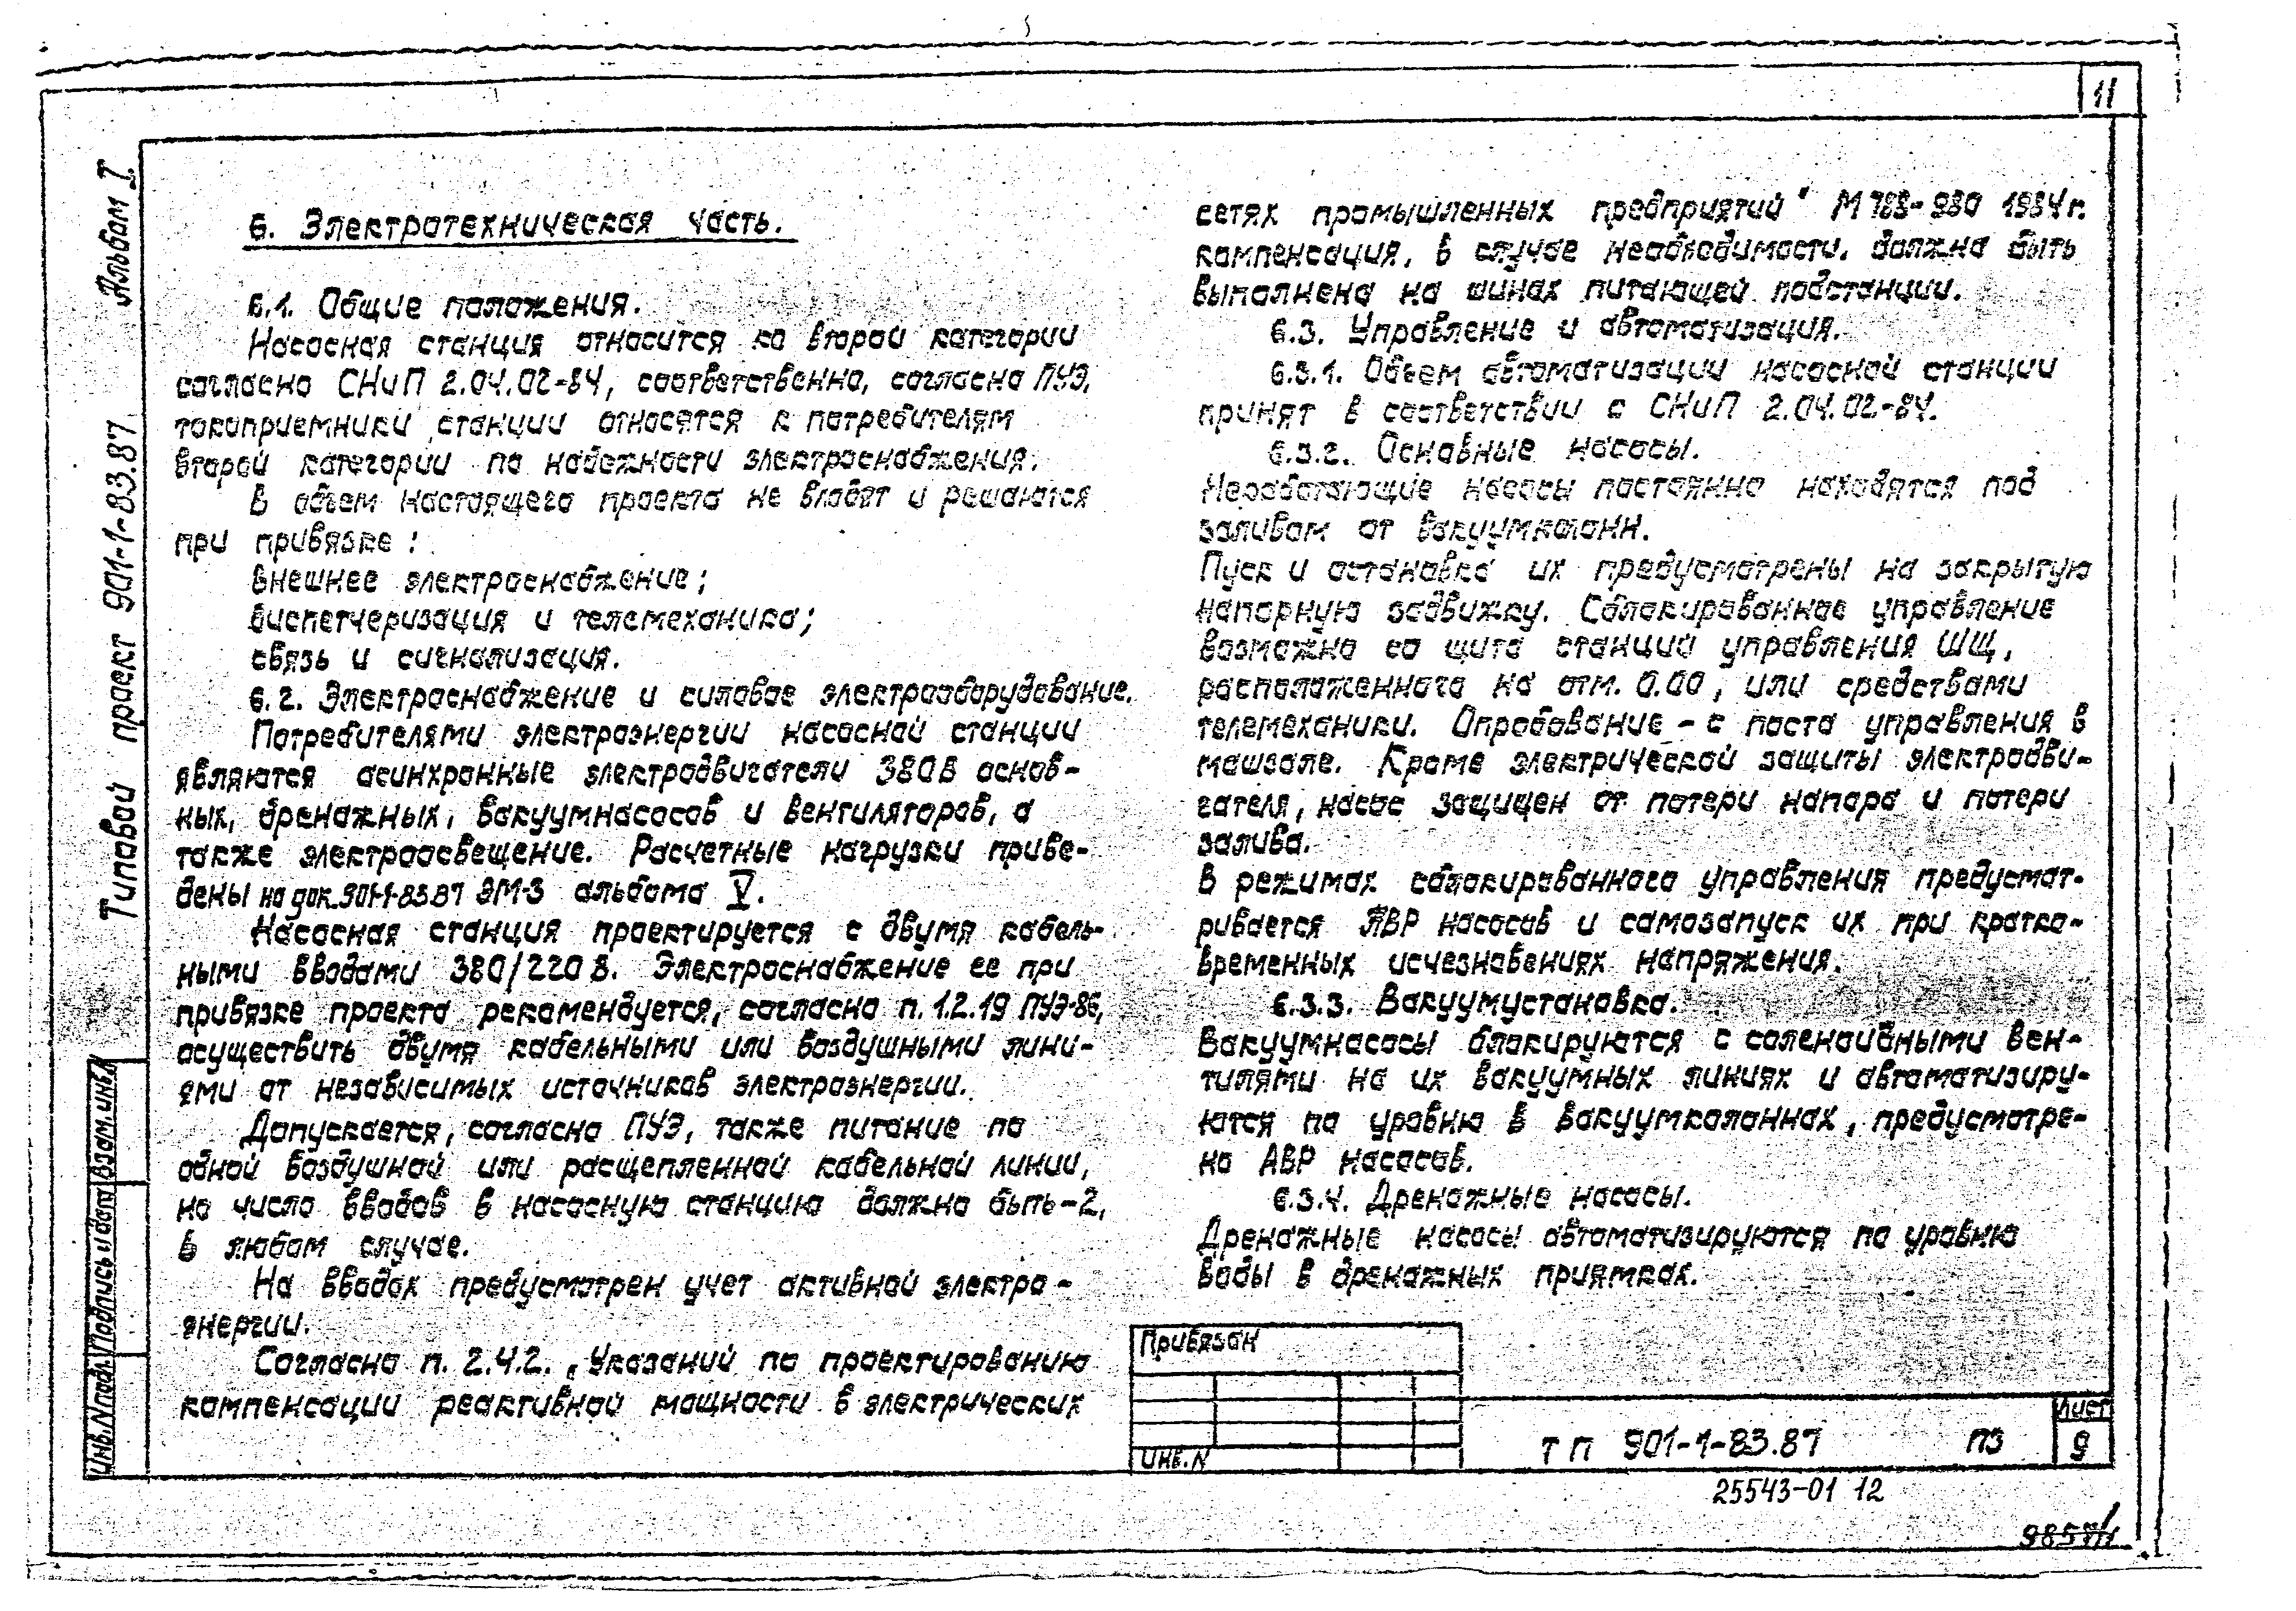 11
Альбом I.
Типовой проект 901-1-83.87
6. Электротехническая часть.
6.1. Общие положения.
Насосная станция относится ко второй категории
согласно СНиП 2.04.02-84, соответственно, согласно ПУЭ,
токоприемники станции относятся к потребителям
второй категории по надежности электроснабжения.
В объем настоящего проекта не входят и решаются
при привязке:
внешнее электроснабжение;
диспетчеризация и телемеханика;
связь и сигнализация.
6.2. Электроснабжение и силовое электрооборудование.
Потребителями электроэнергии насосной станции
являются асинхронные электродвигатели 380В основ-
ных, дренажных, вакуумнасосов и вентиляторов, а
также электроосвещение. Расчетные нагрузки приве-
дены на док. 901-1-83.87 ЭМ-3 альбома V.
Насосная станция проектируется с двумя кабель-
ными вводами 380/220 В. Электроснабжение ее при
привязке проекта рекомендуется, согласно п. 1.2.19 ПУЭ-86,
осуществить двумя кабельными или воздушными лини-
ями от независимых источников электроэнергии.
Допускается, согласно ПУЭ, также питание по
одной воздушной или расщепленной кабельной линии,
но число вводов в насосную станцию должно быть-2,
в любом случае.
На вводах предусмотрен учет активной электро-
энергии.
Согласно п. 2.4.2. „Указаний по проектированию
компенсации реактивной мощности в электрических
сетях промышленных предприятий" М788-930 1984г.
компенсация, в случае необходимости, должна быть
выполнена на шинах питающей подстанции.
6.3. Управление и автоматизация.
6.3.1. Объем автоматизации насосной станции
принят в соответствии с СНиП 2.04.02-84.
6.3.2. Основные насосы.
Неработающие насосы постоянно находятся под
заливом от вакуумколонн.
Пуск и остановка их предусмотрены на закрытую
напорную задвижку. Сблокированное управление
возможно со щита станций управления ШЩ,
расположенного на отм. 0.00, или средствами
телемеханики. Опробование - с поста управления в
машзале. Кроме электрической защиты электродви-
гателя, насос защищен от потери напора и потери
залива.
В режимах сблокированного управления предусмат-
ривается АВР насосов и самозапуск их при кратко-
временных исчезновениях напряжения.
6.3.3. Вакуумустановка.
Вакуумнасосы блокируются с соленоидными вен-
тилями на их вакуумных линиях и автоматизиру-
ются по уровню в вакуумколоннах, предусмотре-
но АВР насосов.
6.3.4. Дренажные насосы.
Дренажные насосы автоматизируются по уровню
воды в дренажных приямках.
Инв.N подл. Подпись и дата Взам.инв.N
Привязан
Инв.N
ТП 901-1-83.87 ПЗ
Лист
9
25543-01 12
9857/1